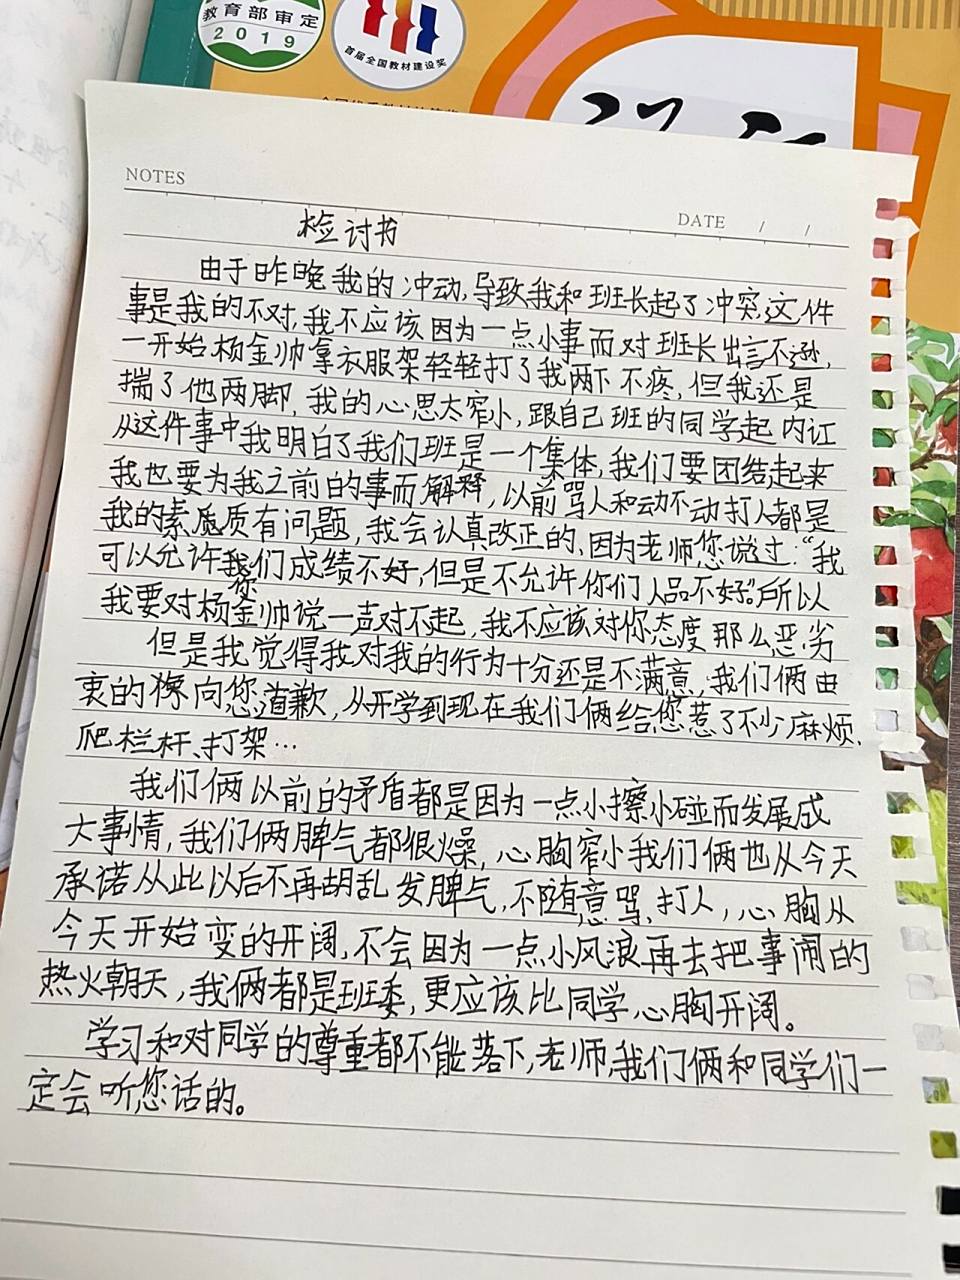 教育部审定
2019
首届全国教材建设奖
NOTES
DATE / /
检讨书
由于昨晚我的冲动,导致我和班长起了冲突,这件
事是我的不对,我不应该因为一点小事而对班长出言不逊,
一开始杨金帅拿衣服架轻轻打了我两下不疼,但我还是
揣了他两脚,我的心思太窄小,跟自己班的同学起内讧
从这件事中我明白了我们班是一个集体,我们要团结起来
我也要为我之前的事而解释,以前骂人和动不动打人都是
我的素质有问题,我会认真改正的,因为老师您说过:“我
可以允许我们成绩不好,但是不允许你们人品不好。”所以
我要对杨金帅说一声对不起,我不应该对你态度那么恶劣
但是我觉得我对我的行为十分还是不满意,我们俩由
衷的像向您道歉,从开学到现在我们俩给您惹了不少麻烦,
爬栏杆、打架…
我们俩以前的矛盾都是因为一点小擦小碰而发展成
大事情,我们俩脾气都很燥,心胸窄小我们俩也从今天
承诺从此以后不再胡乱发脾气,不随意骂、打人,心胸从
今天开始变的开阔,不会因为一点小风浪再去把事闹的
热火朝天,我俩都是班委,更应该比同学心胸开阔。
学习和对同学的尊重都不能落下,老师,我们俩和同学们一
定会听您话的。